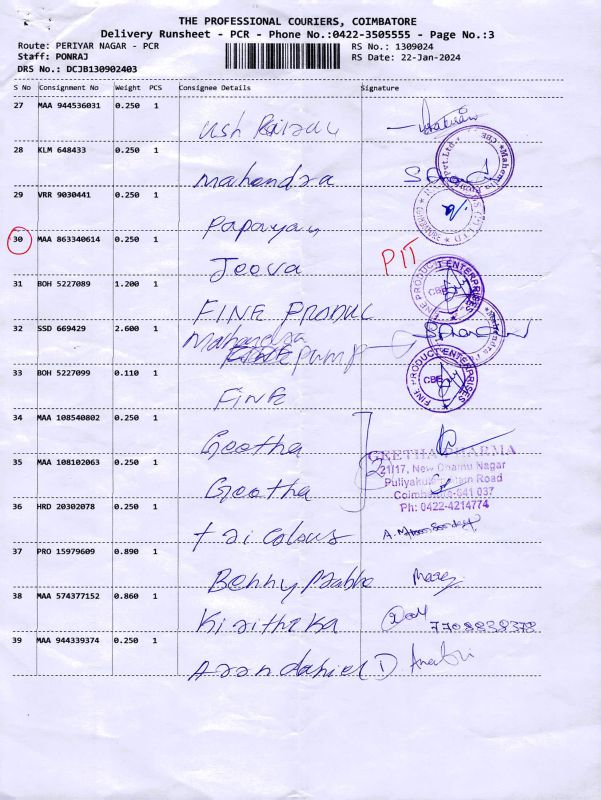 THE PROFESSIONAL COURIERS, COIMBATORE
Delivery Runsheet - PCR - Phone No.:0422-3505555 - Page No.:3
Route: PERIYAR NAGAR - PCR RS No.: 1309024
Staff: PONRAJ RS Date: 22-Jan-2024
DRS No.: DCJB130902403
S No Consignment No Weight PCS Consignee Details Signature
27 MAA 944536031 0.250 1
28 KLM 648433 0.250 1
Mahendra
29 VRR 9030441 0.250 1
30 MAA 863340614 0.250 1
Jeeva PIT
31 BOH 5227089 1.200 1
FINE PRODUC
FINE PRODUCT ENTERPRISES
CBE
32 SSD 669429 2.600 1
Mahandra
PUMP
33 BOH 5227099 0.110 1
FINE
FINE PRODUCT ENTERPRISES
CBE
34 MAA 108540802 0.250 1
Geetha
GEETHA PHARMA
35 MAA 108102063 0.250 1
21/17, New Dhamu Nagar
Puliyakulam Main Road
Geetha
Coimbatore-641 037
Ph: 0422-4214774
36 HRD 20302078 0.250 1
Tri Colous
37 PRO 15979609 0.890 1
Benny
38 MAA 574377152 0.860 1
Kiritheka
39 MAA 944339374 0.250 1
Arondahiel D.